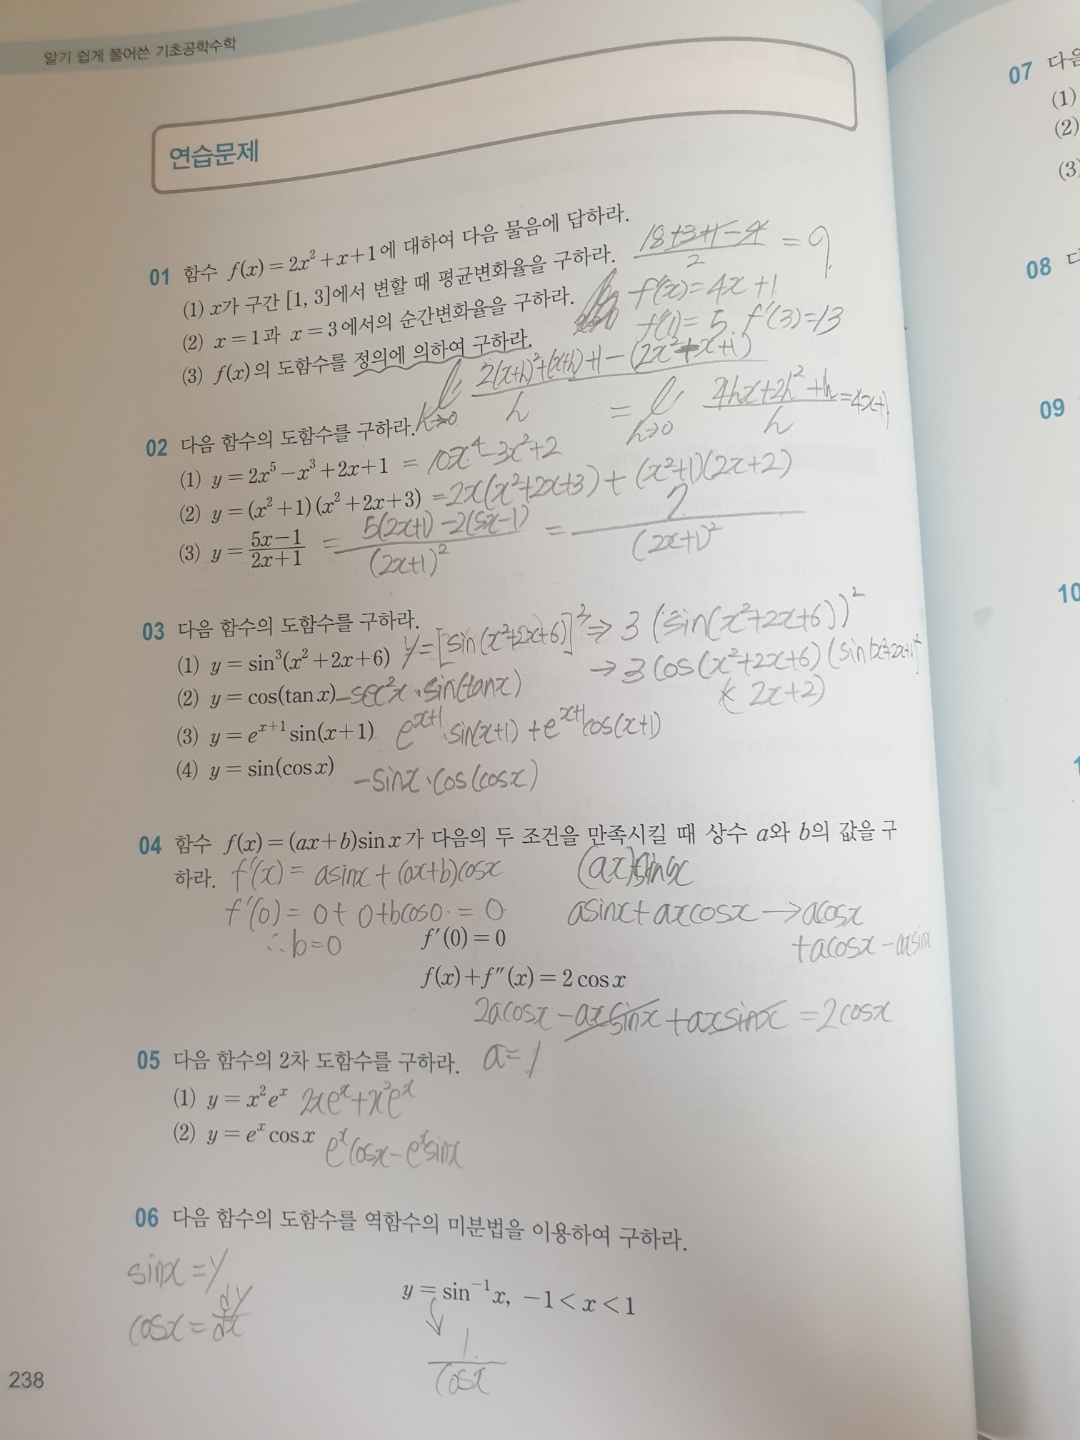 알기 쉽게 풀어쓴 기초공학수학
연습문제
01 함수 f(x)=2x²+x+1에 대하여 다음 물음에 답하라.
(1) x가 구간 [1, 3]에서 변할 때 평균변화율을 구하라. (18+3+1-4)/2 = 9
(2) x=1과 x=3에서의 순간변화율을 구하라. f'(x)=4x+1
f'(1)=5. f'(3)=13
(3) f(x)의 도함수를 정의에 의하여 구하라.
h→0 (2(x+h)²+(x+h)+1-(2x²+x+1))/h = h→0 (4hx+2h²+h)/h =4x+1
02 다음 함수의 도함수를 구하라.
(1) y=2x⁵-x³+2x+1 = 10x⁴-3x²+2
(2) y=(x²+1)(x²+2x+3) =2x(x²+2x+3)+(x²+1)(2x+2)
(3) y=(5x-1)/(2x+1) = (5(2x+1)-2(5x-1))/(2x+1)² = 7/(2x+1)²
03 다음 함수의 도함수를 구하라.
(1) y=sin³(x²+2x+6) y=[sin(x²+2x+6)]³ ⇒ 3(sin(x²+2x+6))²
→3cos(x²+2x+6)
(2x+2)
(2) y=cos(tan x) -sec²x·sin(tanx)
(3) y=eˣ⁺¹sin(x+1) eˣ⁺¹·sin(x+1)+eˣ⁺¹cos(x+1)
(4) y=sin(cos x) -sinx·cos(cosx)
04 함수 f(x)=(ax+b)sin x가 다음의 두 조건을 만족시킬 때 상수 a와 b의 값을 구
하라. f'(x)=asinx+(ax+b)cosx (ax)sinx
f'(0)=0+0+bcos0.=0 asinx+axcosx→acosx
∴b=0 f'(0)=0 +acosx-axsinx
f(x)+f''(x)=2cos x
2acosx-axsinx+axsinx=2cosx
05 다음 함수의 2차 도함수를 구하라. a=1
(1) y=x²eˣ 2xeˣ+x²eˣ
(2) y=eˣcos x eˣcosx-eˣsinx
06 다음 함수의 도함수를 역함수의 미분법을 이용하여 구하라.
sinx=y
y=sin⁻¹x, -1<x<1
cosx=dy/dx
1/cosx
238
07 다음
(1)
(2)
(3)
08 다
09
10